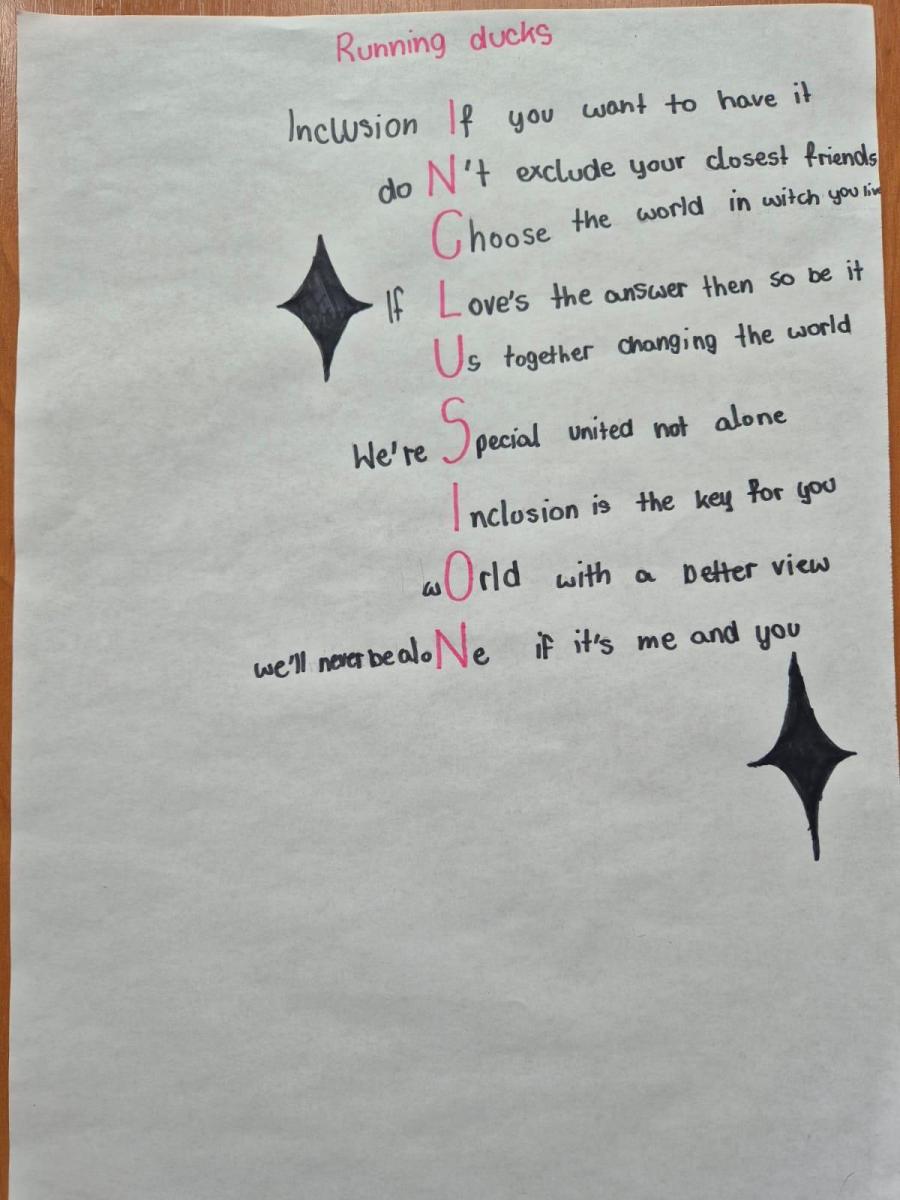 Running ducks
Inclusion If you want to have it
do N't exclude your closest friends
Choose the world in witch you live
If Love's the answer then so be it
Us together changing the world
We're Special united not alone
Inclusion is the key for you
wOrld with a better view
we'll never be aloNe if it's me and you